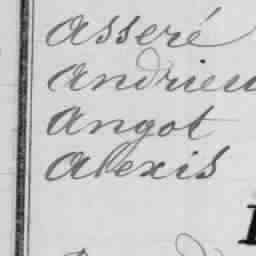 Asseré
Andrieu
Angot
Alexis